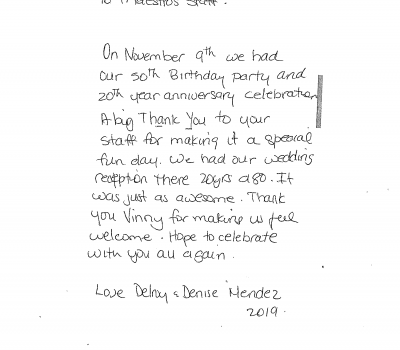 To Maestros Staff.
On November 9th we had
our 50th Birthday party and
20th year anniversary celebration
A big Thank You to your
staff for making it a special
fun day. We had our wedding
reception there 20yrs ago. It
was just as awesome. Thank
you Vinny for making us feel
welcome. Hope to celebrate
with you all again.
Love Delroy & Denise Mendez
2019.